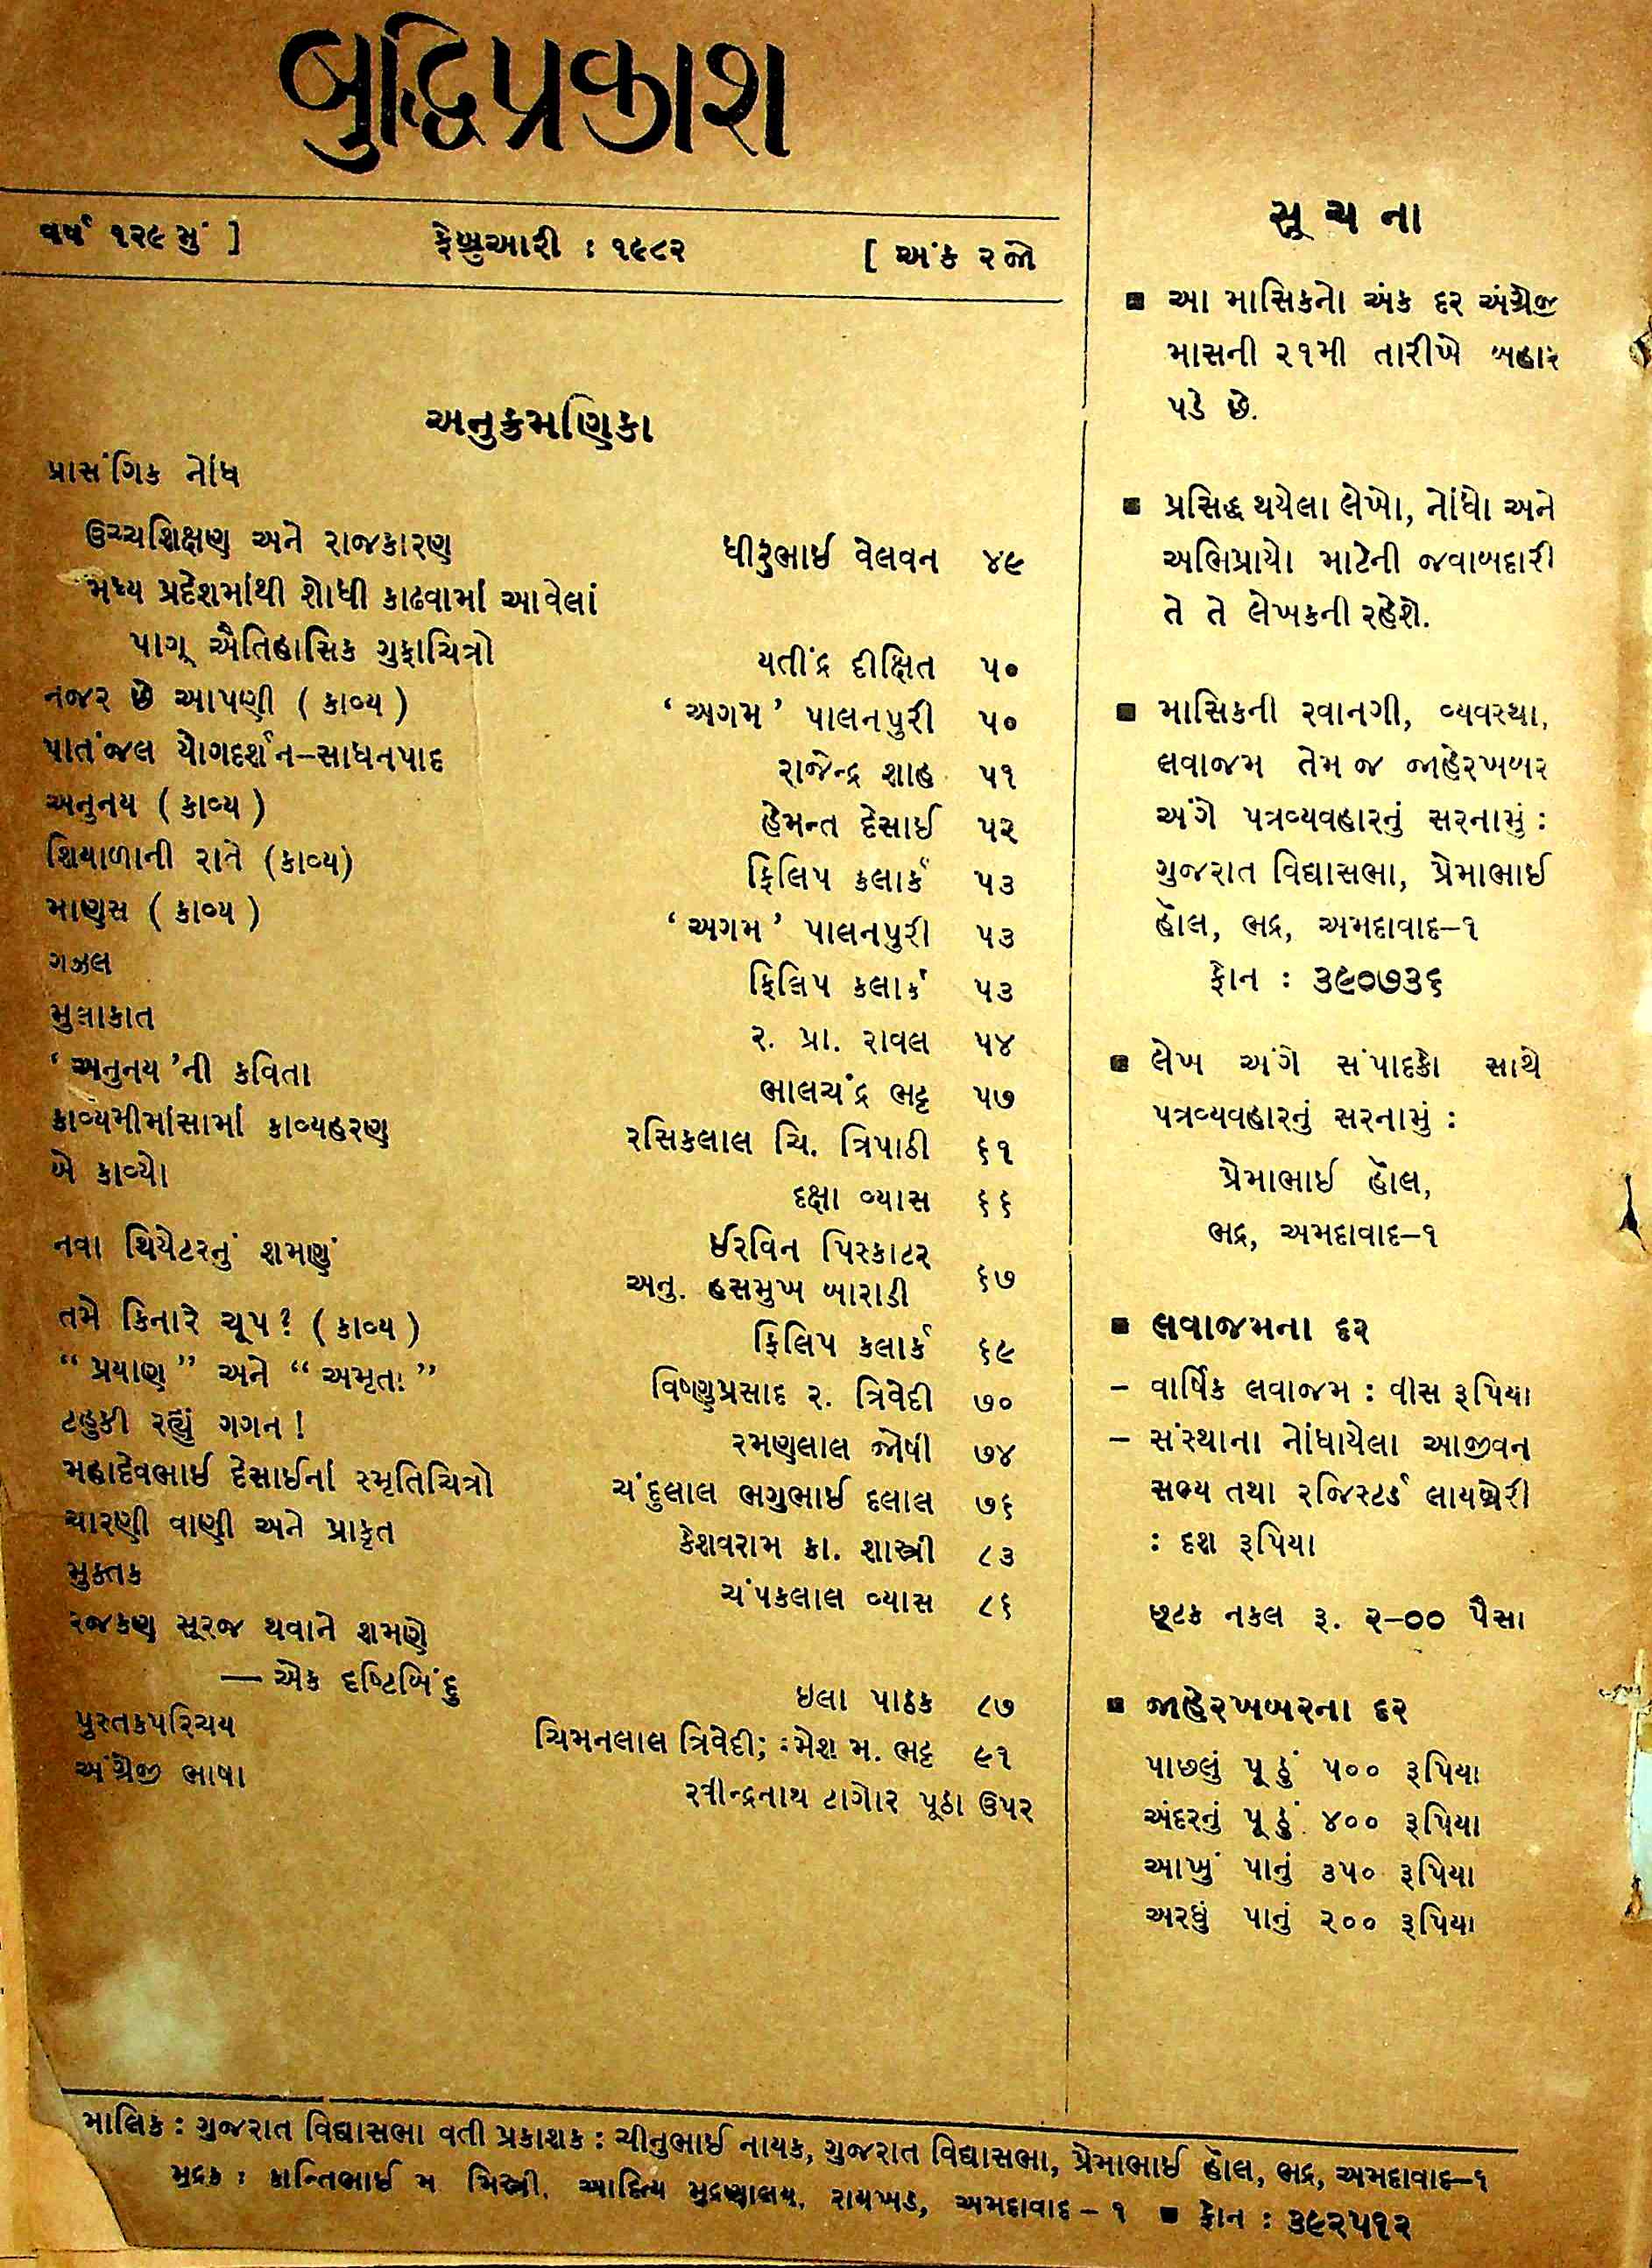 બુદ્ધિપ્રકાશ
વર્ષ ૧૨૯ મું ] ફેબ્રુઆરી : ૧૯૮૨ [ અંક ૨જો
અનુક્રમણિકા
પ્રાસંગિક નોંધ
ઉચ્ચશિક્ષણ અને રાજકારણ ધીરુભાઈ વેલવન ૪૯
મધ્ય પ્રદેશમાંથી શોધી કાઢવામાં આવેલાં
પાગ્ ઐતિહાસિક ગુફાચિત્રો યતીંદ્ર દીક્ષિત ૫૦
નજર છે આપણી ( કાવ્ય ) ‘ અગમ ’ પાલનપુરી ૫૦
પાતંજલ યોગદર્શન–સાધનપાદ રાજેન્દ્ર શાહ ૫૧
અનુનય ( કાવ્ય ) હેમન્ત દેસાઈ ૫૨
શિયાળાની રાતે (કાવ્ય) ફિલિપ કલાર્ક ૫૩
માણસ ( કાવ્ય ) ‘ અગમ ’ પાલનપુરી ૫૩
ગઝલ ફિલિપ કલાર્ક ૫૩
મુલાકાત ર. પ્રા. રાવલ ૫૪
‘ અનુનય ’ની કવિતા ભાલચંદ્ર ભટ્ટ ૫૭
કાવ્યમીમાંસામાં કાવ્યહરણ રસિકલાલ ચિ. ત્રિપાઠી ૬૧
બે કાવ્યો દક્ષા વ્યાસ ૬૬
નવા થિયેટરનું શમણું ઈરવિન પિસ્કાટર
અનુ. હસમુખ બારાડી ૬૭
તમે કિનારે ચૂપ? ( કાવ્ય ) ફિલિપ કલાર્ક ૬૯
“ પ્રયાણ ” અને “ અમૃતા ” વિષ્ણુપ્રસાદ ર. ત્રિવેદી ૭૦
ટહુકી રહ્યું ગગન ! રમણલાલ જોષી ૭૪
મહાદેવભાઈ દેસાઈનાં સ્મૃતિચિત્રો ચંદુલાલ ભગુભાઈ દલાલ ૭૬
ચારણી વાણી અને પ્રાકૃત કેશવરામ કા. શાસ્ત્રી ૮૩
મુક્તક ચંપકલાલ વ્યાસ ૮૬
રજકણ સૂરજ થવાને શમણે
— એક દૃષ્ટિબિંદુ ઇલા પાઠક ૮૭
પુસ્તકપરિચય ચિમનલાલ ત્રિવેદી; મ. ભટ્ટ ૯૧
અંગ્રેજી ભાષા રવીન્દ્રનાથ ટાગોર પૂઠા ઉપર
સૂ ચ ના
■ આ માસિકનો અંક દર અંગ્રેજી
માસની ૨૧મી તારીખે બહાર
પડે છે.
■ પ્રસિદ્ધ થયેલા લેખો, નોંધો અને
અભિપ્રાયો માટેની જવાબદારી
તે તે લેખકની રહેશે.
■ માસિકની રવાનગી, વ્યવસ્થા,
લવાજમ તેમ જ જાહેરખબર
અંગે પત્રવ્યવહારનું સરનામું :
ગુજરાત વિદ્યાસભા, પ્રેમાભાઈ
હૉલ, ભદ્ર, અમદાવાદ–૧
ફોન : ૩૯૦૭૩૬
■ લેખ અંગે સંપાદકો સાથે
પત્રવ્યવહારનું સરનામું :
પ્રેમાભાઈ હૉલ,
ભદ્ર, અમદાવાદ–૧
■ લવાજમના દર
– વાર્ષિક લવાજમ : વીસ રૂપિયા
– સંસ્થાના નોંધાયેલા આજીવન
સભ્ય તથા રજિસ્ટર્ડ લાયબ્રેરી
: દશ રૂપિયા
છૂટક નકલ રૂ. ૨–૦૦ પૈસા
■ જાહેરખબરના દર
પાછલું પૂઠું ૫૦૦ રૂપિયા
અંદરનું પૂઠું ૪૦૦ રૂપિયા
આખું પાનું ૩૫૦ રૂપિયા
અરધું પાનું ૨૦૦ રૂપિયા
માલિક : ગુજરાત વિદ્યાસભા વતી પ્રકાશક : ચીનુભાઈ નાયક, ગુજરાત વિદ્યાસભા, પ્રેમાભાઈ હૉલ, ભદ્ર, અમદાવાદ–૧
મુદ્રક : કાન્તિભાઈ મ મિસ્ત્રી, આદિત્ય મુદ્રણાલય, રાયખડ, અમદાવાદ – ૧ ■ ફોન : ૩૯૨૫૧૨